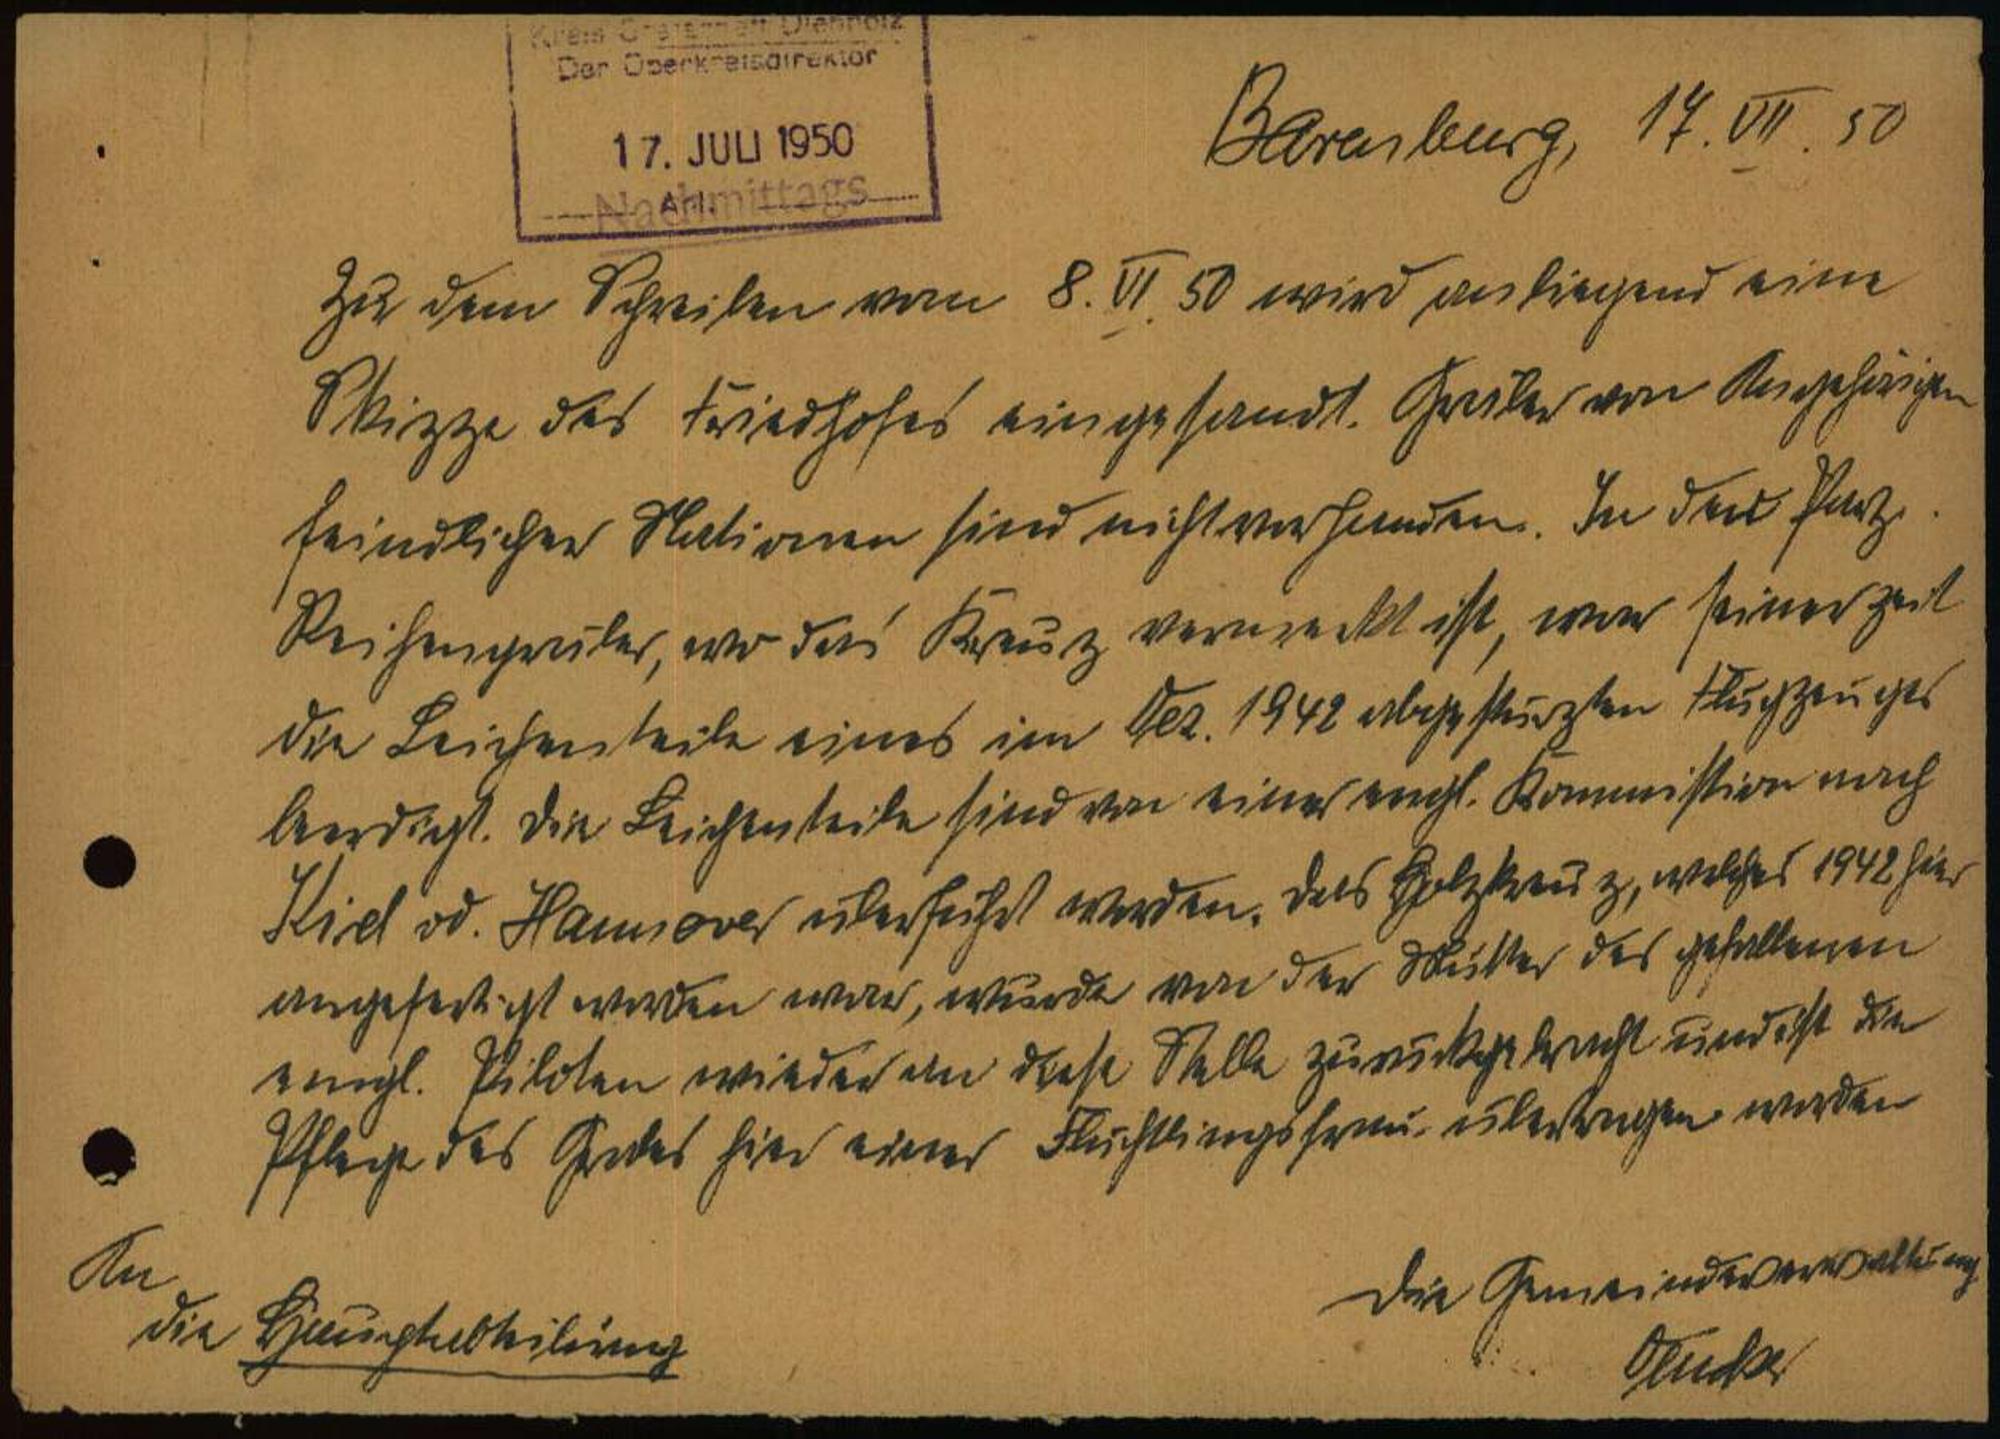 Kreis Grafschaft Diepholz
Der Oberkreisdirektor
17. JULI 1950
Anl.
Nachmittags
Barenburg, 17. VII. 50
Zu dem Schreiben vom 8. VI. 50 wird anliegend eine
Skizze des Friedhofes eingesandt. Gräber von Angehörigen
feindlicher Nationen sind nicht vorhanden. In den
Reihengräber, wo das Kreuz vermerkt ist, war seinerzeit
die Leichenteile eines im Dez. 1942 abgestürzten Flugzeuges
beerdigt. Die Leichenteile sind von einer engl. Kommission nach
Kiel od. Hannover überführt worden. Das Holzkreuz, welches 1942 hier
angefertigt worden war, wurde von der Mutter des gefallenen
engl. Piloten wieder an diese Stelle zurückgebracht und ist die
Pflege des Grabes hier einer Flüchtlingsfrau übertragen worden
An
die Hauptabteilung
Die Gemeindeverwaltung